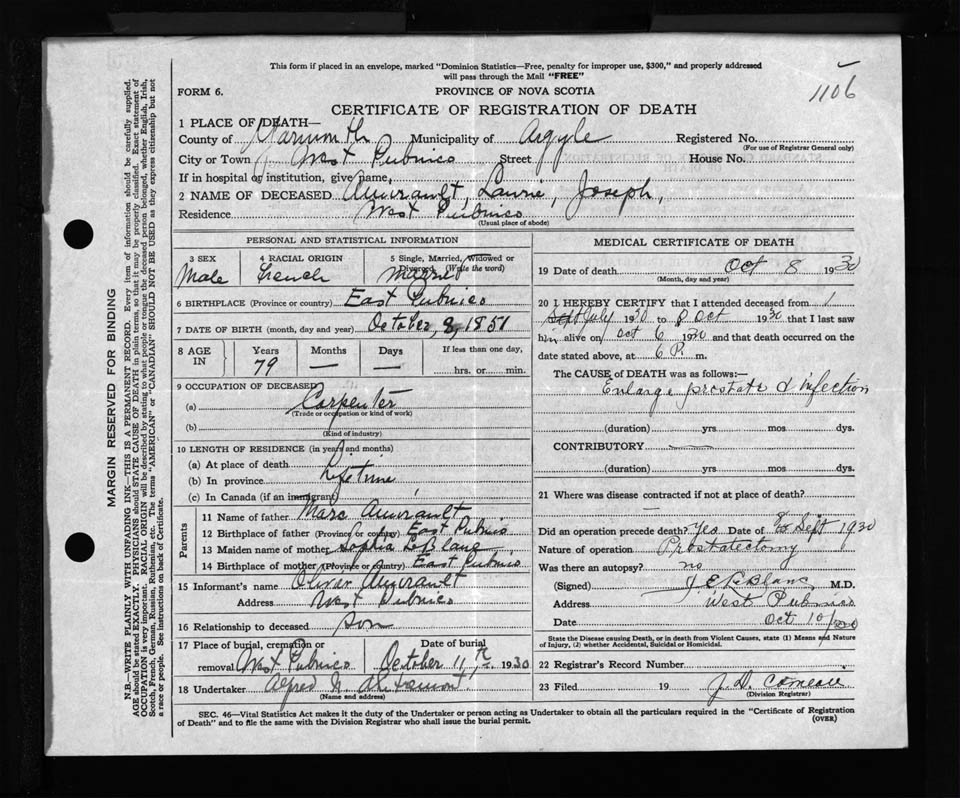 This form if placed in an envelope, marked "Dominion Statistics—Free, penalty for improper use, $300," and properly addressed
will pass through the Mail "FREE"
1106
FORM 6.
PROVINCE OF NOVA SCOTIA
CERTIFICATE OF REGISTRATION OF DEATH
1 PLACE OF DEATH—
County of Yarmouth Municipality of Argyle Registered No.
(For use of Registrar General only)
City or Town West Pubnico Street House No.
If in hospital or institution, give name,
2 NAME OF DECEASED Amirault, Laurie, Joseph,
Residence West Pubnico
(Usual place of abode)
PERSONAL AND STATISTICAL INFORMATION
3 SEX 4 RACIAL ORIGIN 5 Single, Married, Widowed or
Divorced (Write the word)
Male French Married
6 BIRTHPLACE (Province or country) East Pubnico
7 DATE OF BIRTH (month, day and year) October, 8, 1851
8 AGE IN Years Months Days If less than one day,
79 — — hrs. or min.
9 OCCUPATION OF DECEASED
(a) Carpenter
(Trade or occupation or kind of work)
(b)
(Kind of industry)
10 LENGTH OF RESIDENCE (in years and months)
(a) At place of death
(b) In province Lifetime
(c) In Canada (if an immigrant)
Parents
11 Name of father Marc Amirault
12 Birthplace of father (Province or country) East Pubnico
13 Maiden name of mother Sophia LeBlanc
14 Birthplace of mother (Province or country) East Pubnico
15 Informant's name Olivar Amirault
Address West Pubnico
16 Relationship to deceased Son
17 Place of burial, cremation or Date of burial
removal West Pubnico October 11,th 1930
18 Undertaker Alfred N. d'Entremont
(Name and address)
MEDICAL CERTIFICATE OF DEATH
19 Date of death Oct 8 1930
(Month, day and year)
20 I HEREBY CERTIFY that I attended deceased from 1
Sept July 1930 to 8 Oct 1930 that I last saw
him alive on Oct 6 1930 and that death occurred on the
date stated above, at 6 P. m.
The CAUSE of DEATH was as follows:—
Enlarge prostate & infection
(duration) yrs mos dys.
CONTRIBUTORY
(duration) yrs. mos. dys.
21 Where was disease contracted if not at place of death?
—
Did an operation precede death? Yes Date of Sept 1930
Nature of operation Prostatectomy
Was there an autopsy? no
(Signed) J E LeBlanc M.D.
Address West Pubnico
Date Oct 10/1930
State the Disease causing Death, or in death from Violent Causes, state (1) Means and Nature
of Injury, (2) whether Accidental, Suicidal or Homicidal.
22 Registrar's Record Number
23 Filed 19 J. D. Comeau
(Division Registrar)
SEC. 46—Vital Statistics Act makes it the duty of the Undertaker or person acting as Undertaker to obtain all the particulars required in the "Certificate of Registration
of Death" and to file the same with the Division Registrar who shall issue the burial permit.
(OVER)
MARGIN RESERVED FOR BINDING
N.B.—WRITE PLAINLY WITH UNFADING INK—THIS IS A PERMANENT RECORD. Every item of information should be carefully supplied.
AGE should be stated EXACTLY. PHYSICIANS should STATE CAUSE OF DEATH in plain terms, so that it may be properly classified. Exact statement of
OCCUPATION is very important. RACIAL ORIGIN will be described by stating to what people or tongue the deceased person belonged, whether English, Irish,
Scotch, French, German, Russian, Ruthenian, etc. The terms "AMERICAN" or "CANADIAN" SHOULD NOT BE USED as they express citizenship but not
a race or people. See instructions on back of Certificate.